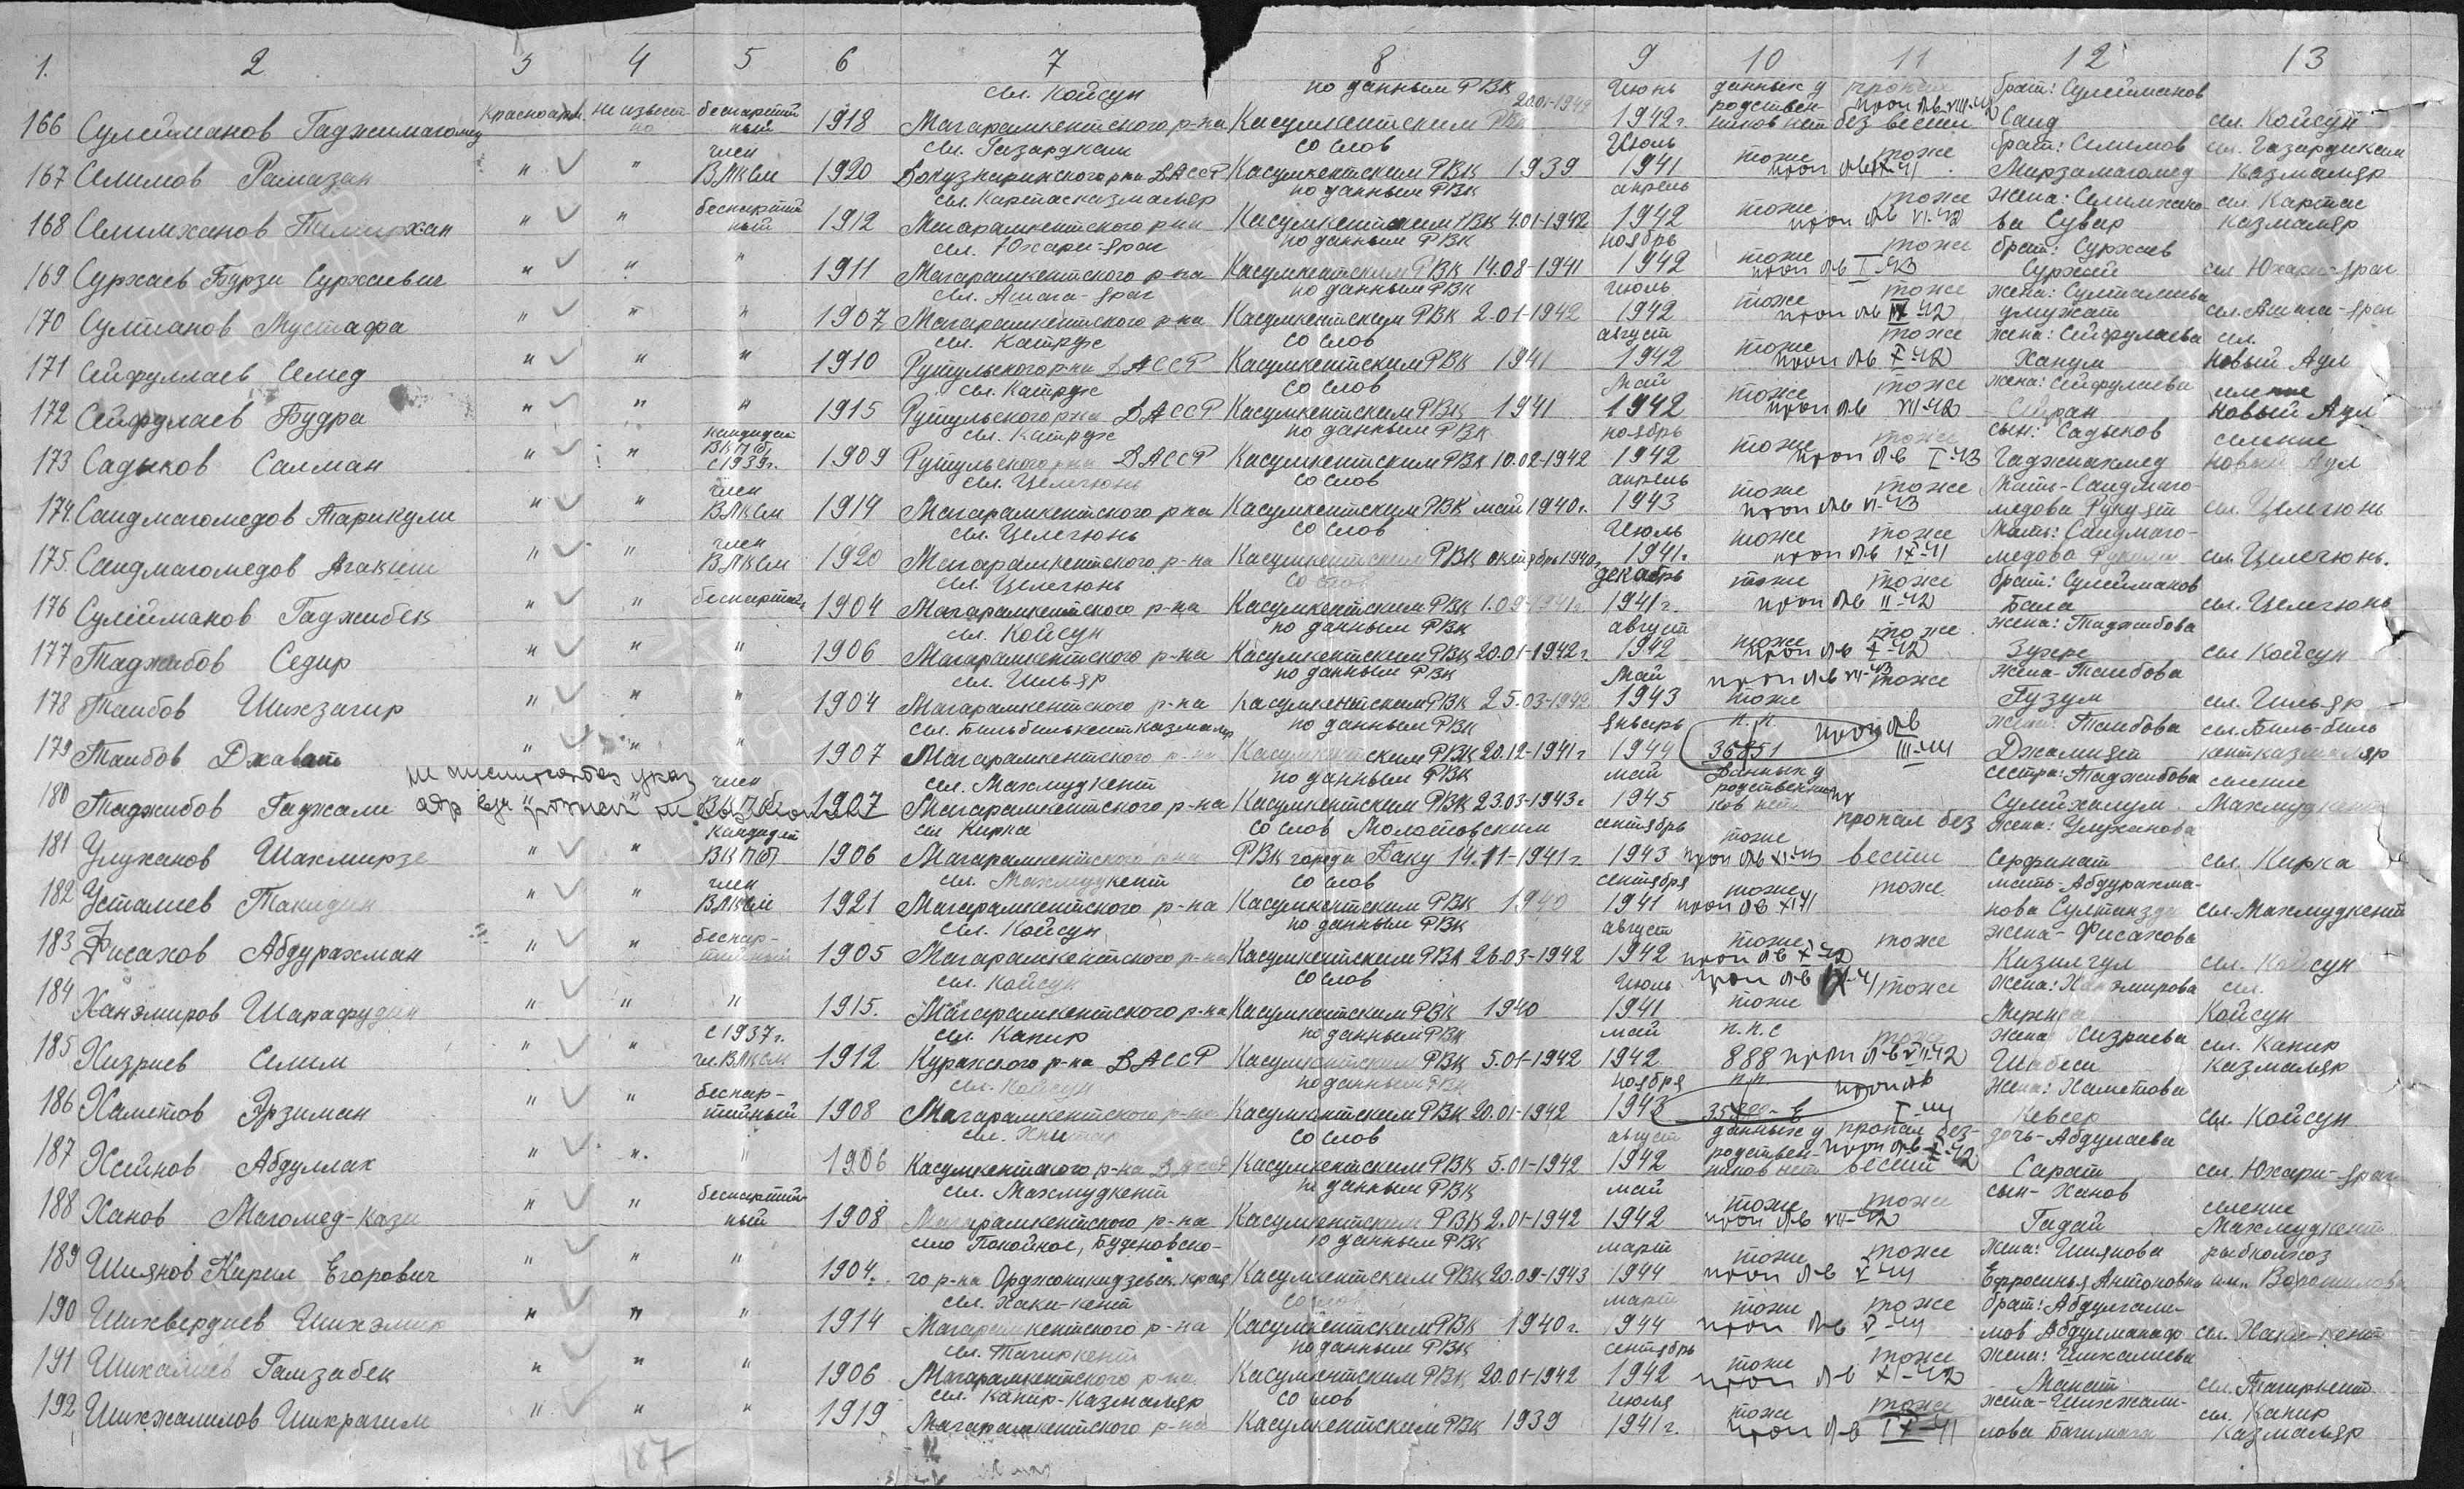 1. 2 3 4 5 6 7 8 9 10 11 12 13
166 Сулейманов Гаджимагомед красноарм. не известно беспартийный 1918 сел. Койсун Магарамкентского р-на по данным РВК Касумкентским РВК 20.01-1942 Июнь 1942 г. данных у родственников нет пропал без вести проп. б-в VIII-42 брат: Сулейманов Саид сел. Койсун
167 Селимов Рамазан " " член ВЛКСМ 1920 сел. Газардкам Докузпаринского р-на ДАССР со слов Касумкентским РВК 1939 Июль 1941 тоже тоже проп б-в IX-41 брат: Селимов Мирзамагомед сел. Газардкам Казмаляр
168 Селимханов Темирхан " " беспартийный 1912 сел. Картасказмаляр Магарамкентского р-на по данным РВК Касумкентским РВК 4.01-1942 апрель 1942 тоже тоже проп б-в VI-42 жена: Селимханова Сувар сел. Картас Казмаляр
169 Сурхаев Бурзи Сурхаевич " " " 1911 сел. Юхари-яраг Магарамкентского р-на по данным РВК Касумкентским РВК 14.08-1941 ноябрь 1942 тоже тоже проп б-в I-43 брат: Сурхаев Сурхай сел. Юхари-яраг
170 Султанов Мустафа " " " 1907 сел. Ашага-яраг Магарамкентского р-на по данным РВК Касумкентским РВК 2.01-1942 июль 1942 тоже тоже проп б-в IX-42 жена: Султалиева умужат сел. Ашага-яраг
171 Сейфуллаев Семед " " " 1910 сел. Катрдж Рутульского р-на ДАССР со слов Касумкентским РВК 1941 август 1942 тоже тоже проп б-в X-42 жена: Сейфулаева Ханум сел. Новый Аул
172 Сейфулаев Будра " " " 1915 сел. Катрдж Рутульского р-на ДАССР со слов Касумкентским РВК 1941 Май 1942 тоже тоже проп б-в VII-42 жена: Сейфулаева Сейран селение Новый Аул
173 Садыков Салман " " кандидат ВКП(б) с 1939г. 1909 сел. Катрдж Рутульского р-на ДАССР по данным РВК Касумкентским РВК 10.02-1942 ноябрь 1942 тоже тоже проп б-в I-43 сын: Садыков Гаджиахмед селение Новый Аул
174. Саидмагомедов Тарикули " " член ВЛКСМ 1914 сел. Целегюнь Магарамкентского р-на со слов Касумкентским РВК май 1940г. апрель 1943 тоже тоже проп б-в VI-43 Мать-Саидмагомедова Рукуят сел. Целегюнь
175. Саидмагомедов Агаким " " член ВЛКСМ 1920 сел. Целегюнь Магарамкентского р-на со слов Касумкентским РВК октябрь 1940г. Июль 1941г. тоже тоже проп б-в IX-41 Мать: Саидмагомедова сел. Целегюнь.
176 Сулейманов Гаджибек " " беспартий. 1904 сел. Целегюнь Магарамкентского р-на со слов Касумкентским РВК 1.09-1941г. декабрь 1941 г. тоже тоже проп б-в II-42 брат: Сулейманов Бала сел. Целегюнь
177 Таджибов Седир " " " 1906 сел. Койсун Магарамкентского р-на по данным РВК Касумкентским РВК 20.01-1942 г. август 1942 тоже тоже проп б-в X-42 жена: Таджибова Зухре сел Койсун
178 Таибов Шихзагир " " " 1904 сел. Гильяр Магарамкентского р-на по данным РВК Касумкентским РВК 25.03-1942 Май 1943 проп б-в VII-43 тоже тоже жена-Таибова Гузум сел. Гильяр
179 Таибов Джават " " " 1907 сел. Бильбилькент Казмаляр Магарамкентского р-на по данным РВК Касумкентским РВК 20.12-1941г январь 1944 п.п. 36851 проп б-в III-44 жена: Таибова Джамият сел. Биль-биль кентказмаляр
180 Таджибов Гаджали " член ВКП(б) 1907 сел. Махмудкент Магарамкентского р-на по данным РВК Касумкентским РВК 23.03-1943г май 1945 Данных у родственников нет сестра: Таджибова Сулейханум селение Махмудкент
181 Улуханов Шахмирзе " " Кандидат ВКП(б) 1906 сел Кирка Магарамкентского р-на со слов Молотовским РВК города Баку 14.11-1941г сентябрь 1943 тоже проп б-в XI-43 пропал без вести жена: Улуханова Серфинат сел. Кирка
182 Усталиев Такидин " " член ВЛКСМ 1921 сел. Махмудкент Магарамкентского р-на со слов Касумкентским РВК 1940 сентября 1941 тоже проп б-в XI-41 тоже мать-Абдурахманова Султанзда сел. Махмудкент
183 Фисахов Абдурахман " " беспартийный 1905 сел. Койсун Магарамкентского р-на по данным РВК Касумкентским РВК 26.03-1942 август 1942 тоже проп б-в X-42 тоже жена-Фисахова Кизилгул сел. Койсун
184 Ханэмиров Шарафудин " " " 1915. сел. Койсун Магарамкентского р-на со слов Касумкентским РВК 1940 Июль 1941 проп б-в IX-41 тоже тоже жена: Ханэмирова сел. Койсун
185 Хизриев Селим " " с 1937г. чл. ВЛКСМ 1912 сел. Капир Курахского р-на ДАССР по данным РВК Касумкентским РВК 5.01-1942 май 1942 п.п.с 888 проп б-в VII-42 тоже жена Хизриева Шабеси сел. Капир Казмаляр
186 Хаметов Эрзиман " " беспартийный 1908 сел. Койсун Магарамкентского р-на по данным РВК Касумкентским РВК 20.01-1942 ноября 1943 п.п. проп б-в I-44 жена: Хаметова Кевсер сел. Койсун
187 Хейнов Абдуллах " " " 1906 сел. Касумкентского р-на ДАССР со слов Касумкентским РВК 5.01-1942 август 1942 данных у родственников нет пропал без вести проп б-в X-42 дочь-Абдулаева Сарат сел. Юхари-яраг
188 Ханов Магомед-кази " " беспартийный 1908 сел. Махмудкент Магарамкентского р-на по данным РВК Касумкентским РВК 2.01-1942 май 1942 тоже тоже проп б-в VII-42 сын-Ханов Гадай селение Махмудкент
189 Шиянов Кирил Егорович " " " 1904. село Покойное, Буденовского р-на Орджоникидзевск. края по данным РВК Касумкентским РВК 20.09-1943 март 1944 тоже тоже проп б-в V-44 жена: Шиянова Ефросинья Антоновна рыбколхоз им. Ворошилова
190 Шихвердиев Шихэмир " " " 1914 сел. Хаки-кент Магарамкентского р-на со слов Касумкентским РВК 1940г. март 1944 тоже тоже проп б-в V-44 брат: Абдулгалимов Абдулманаф сел. Хаки-кент
191 Шихалиев Гамзабек " " " 1906 сел. Тагиркент Магарамкентского р-на по данным РВК Касумкентским РВК 20.01-1942 сентябрь 1942 тоже тоже проп б-в XI-42 жена: Шихалиева Манат сел. Тагиркент
192 Шихжалилов Шихрагим " " " 1919 сел. Капир-Казмаляр Магарамкентского р-на со слов Касумкентским РВК 1939 июля 1941 г. тоже тоже проп б-в IX-41 жена-Шихжалилова Багимага сел. Капир Казмаляр
187